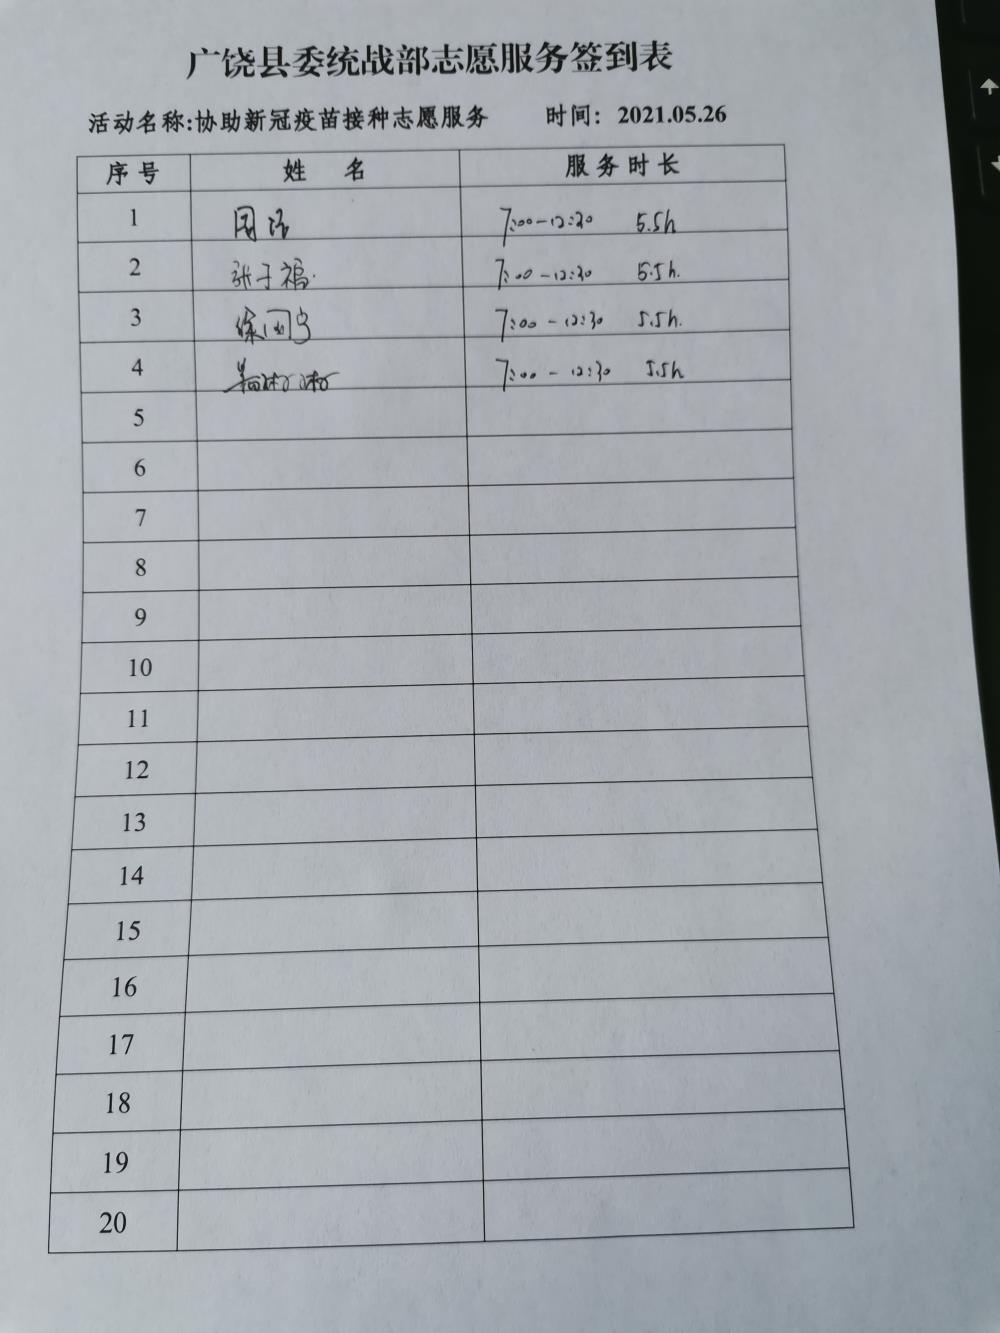 广饶县委统战部志愿服务签到表
活动名称:协助新冠疫苗接种志愿服务 时间: 2021.05.26
序号 姓 名 服务时长
1 7:00-12:30 5.5h
2 张子福 7:00-12:30 5.5h.
3 7:00-12:30 5.5h.
4 7:00-12:30 5.5h
5
6
7
8
9
10
11
12
13
14
15
16
17
18
19
20